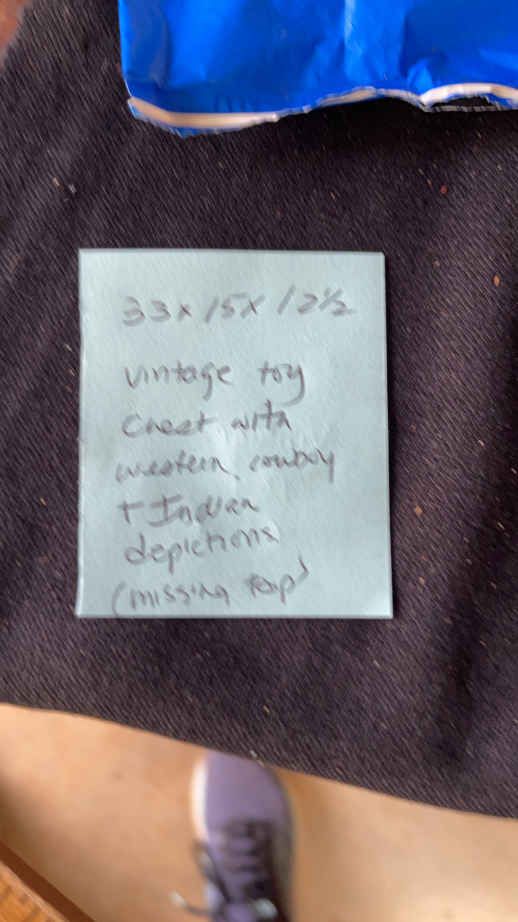 33x15x12½
vintage toy
chest with
western, cowboy
+ Indian
depictions
(missing top)